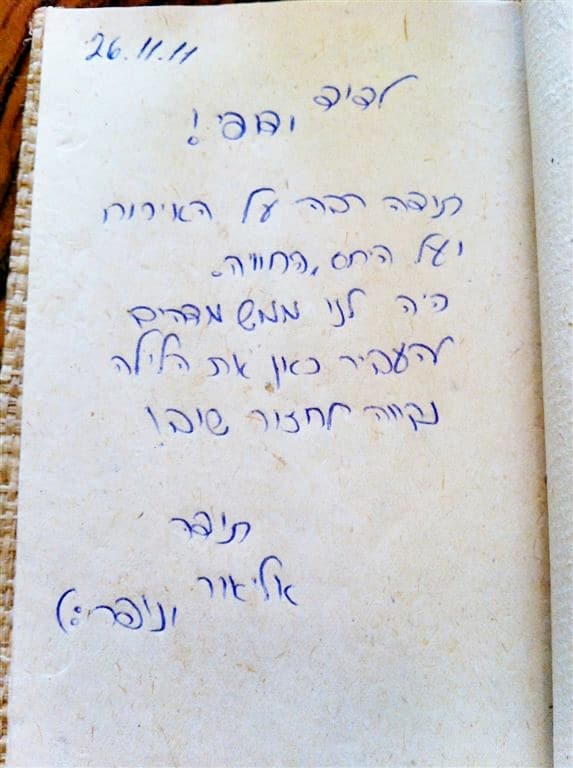 26.11.11
ודודי !
תודה רבה על האירוח
ועל היחס, החוויה.
היה לנו ממש מדהים
להעביר כאן את הלילה
נקווה לחזור שוב!
תודה
אליאור
:)